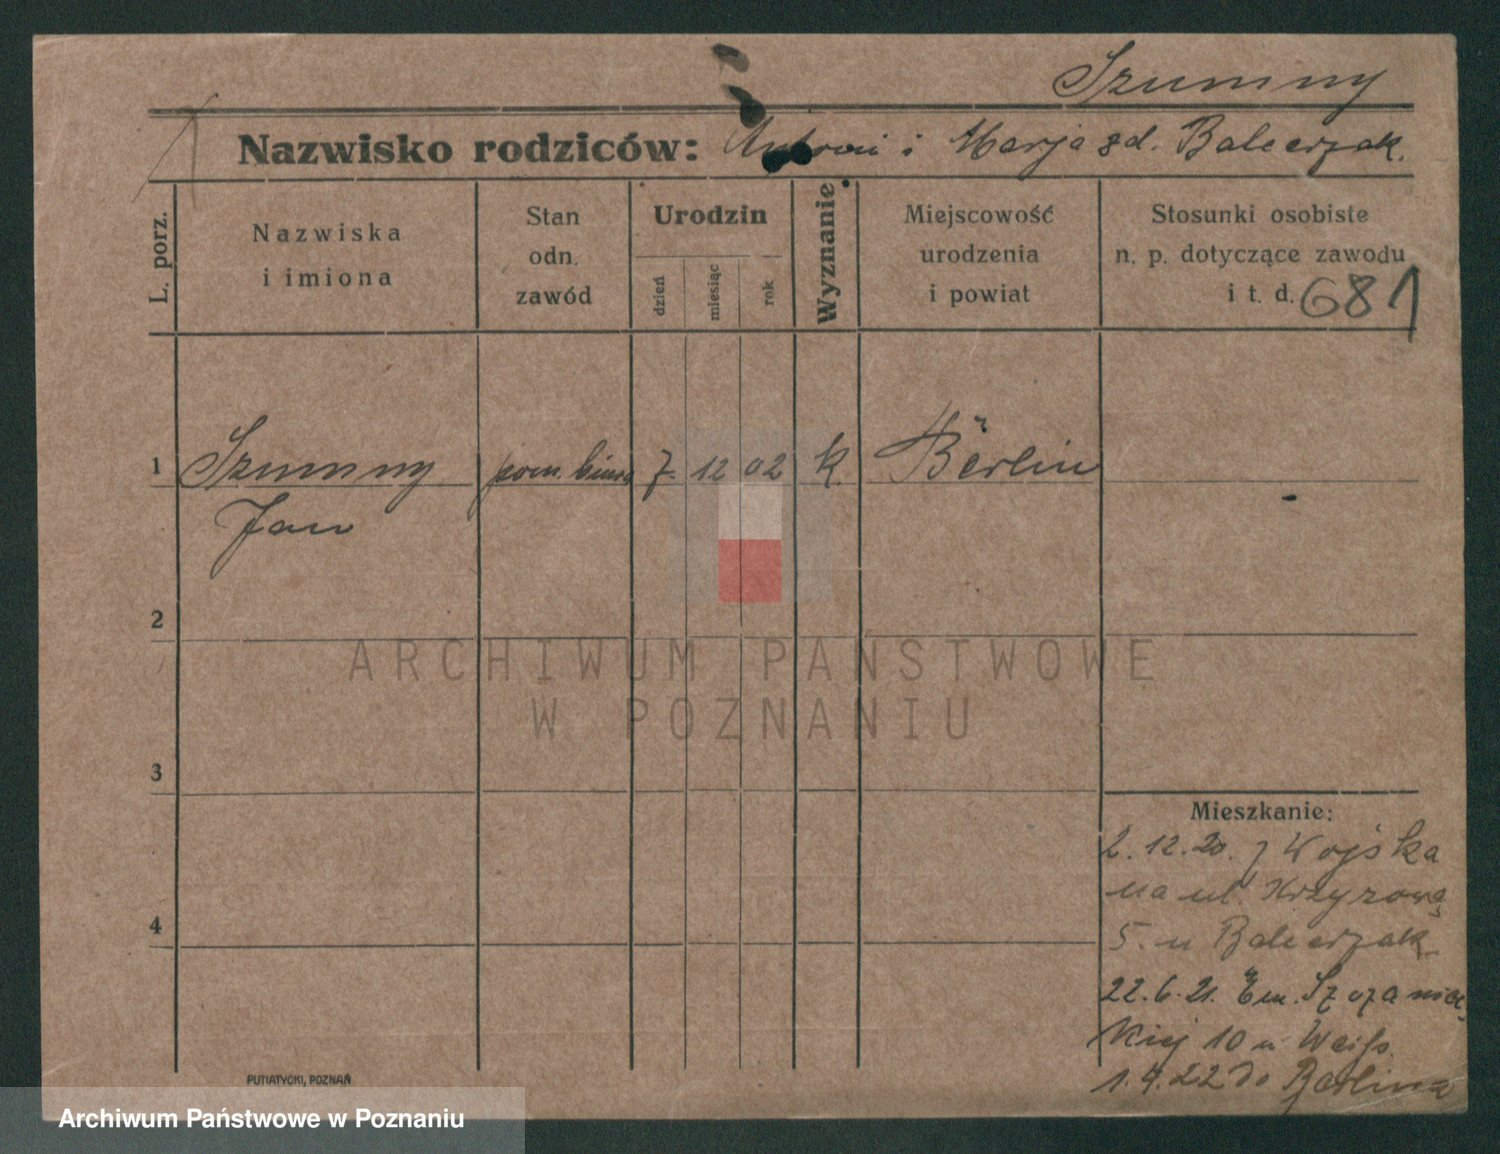 Szumny
Nazwisko rodziców: Antoni i Marja zd. Balcerzak.
L. porz.
Nazwiska
i imiona
Stan
odn.
zawód
Urodzin
dzień
miesiąc
rok
Wyznanie
Miejscowość
urodzenia
i powiat
Stosunki osobiste
n. p. dotyczące zawodu
i t. d. 681
1 Szumny pom. biura 7. 12 02 k. Berlin
Jan
2
ARCHIWUM PAŃSTWOWE
W POZNANIU
3
Mieszkanie:
2.12.20. z Wojska
na ul. Krzyżową
4
5. u Balcerzak
22.6.21. Em. Szczaniec
kiej 10 u Weiss.
1.4.22 do Berlina
PUTIATYCKI, POZNAŃ
Archiwum Państwowe w Poznaniu